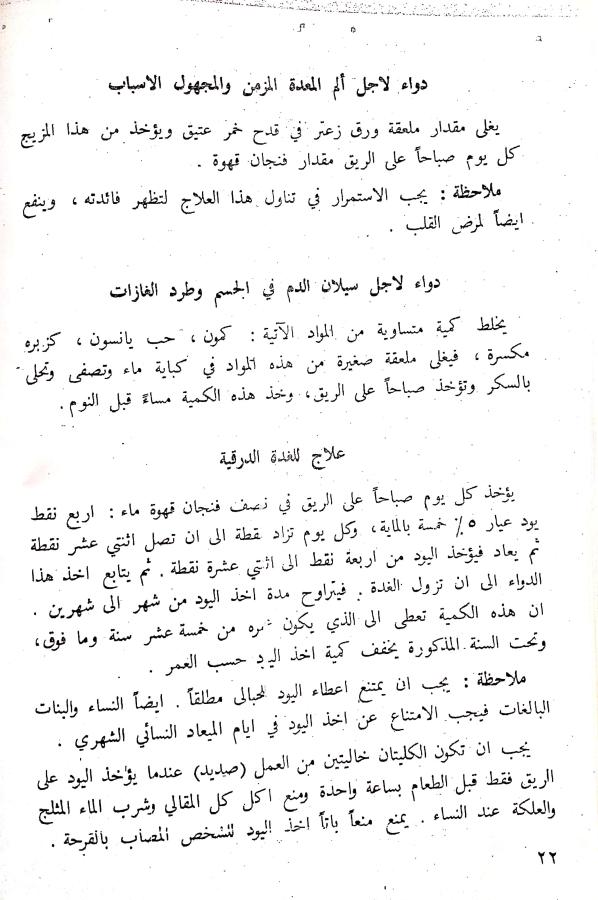 دواء لاجل ألم المعدة المزمن والمجهول الاسباب
يغلى مقدار ملعقة ورق زعتر في قدح خمر عتيق ويؤخذ من هذا المزيج
كل يوم صباحاً على الريق مقدار فنجان قهوة .
ملاحظة : يجب الاستمرار في تناول هذا العلاج لتظهر فائدته ، وينفع
ايضاً لمرض القلب .
دواء لاجل سيلان الدم في الجسم وطرد الغازات
يخلط كمية متساوية من المواد الآتية : كمون ، حب يانسون ، كزبره
مكسرة ، فيغلى ملعقة صغيرة من هذه المواد في كباية ماء وتصفى وتحلى
بالسكر وتؤخذ صباحاً على الريق ، وخذ هذه الكمية مساءً قبل النوم .
علاج للغدة الدرقية
يؤخذ كل يوم صباحاً على الريق في نصف فنجان قهوة ماء : اربع نقط
يود عيار ٥٪ خمسة بالماية ، وكل يوم تزاد نقطة الى ان تصل اثنتي عشر نقطة
ثم يعاد فيؤخذ اليود من اربعة نقط الى اثنتي عشرة نقطة . ثم يتابع اخذ هذا
الدواء الى ان تزول الغدة . فيتراوح مدة اخذ اليود من شهر الى شهرين .
ان هذه الكمية تعطى الى الذي يكون عمره من خمسة عشر سنة وما فوق ،
وتحت السنة المذكورة يخفف كمية اخذ اليود حسب العمر .
ملاحظة : يجب ان يمتنع اعطاء اليود للحبالى مطلقاً . ايضاً النساء والبنات
البالغات فيجب الامتناع عن اخذ اليود في ايام الميعاد النسائي الشهري .
يجب ان تكون الكليتان خاليتين من العمل (صديد) عندما يؤاخذ اليود على
الريق فقط قبل الطعام بساعة واحدة ومنع اكل كل المقالي وشرب الماء المثلج
والعلكة عند النساء . يمنع منعاً باتاً اخذ اليود للشخص المصاب بالقرحة .
٢٢